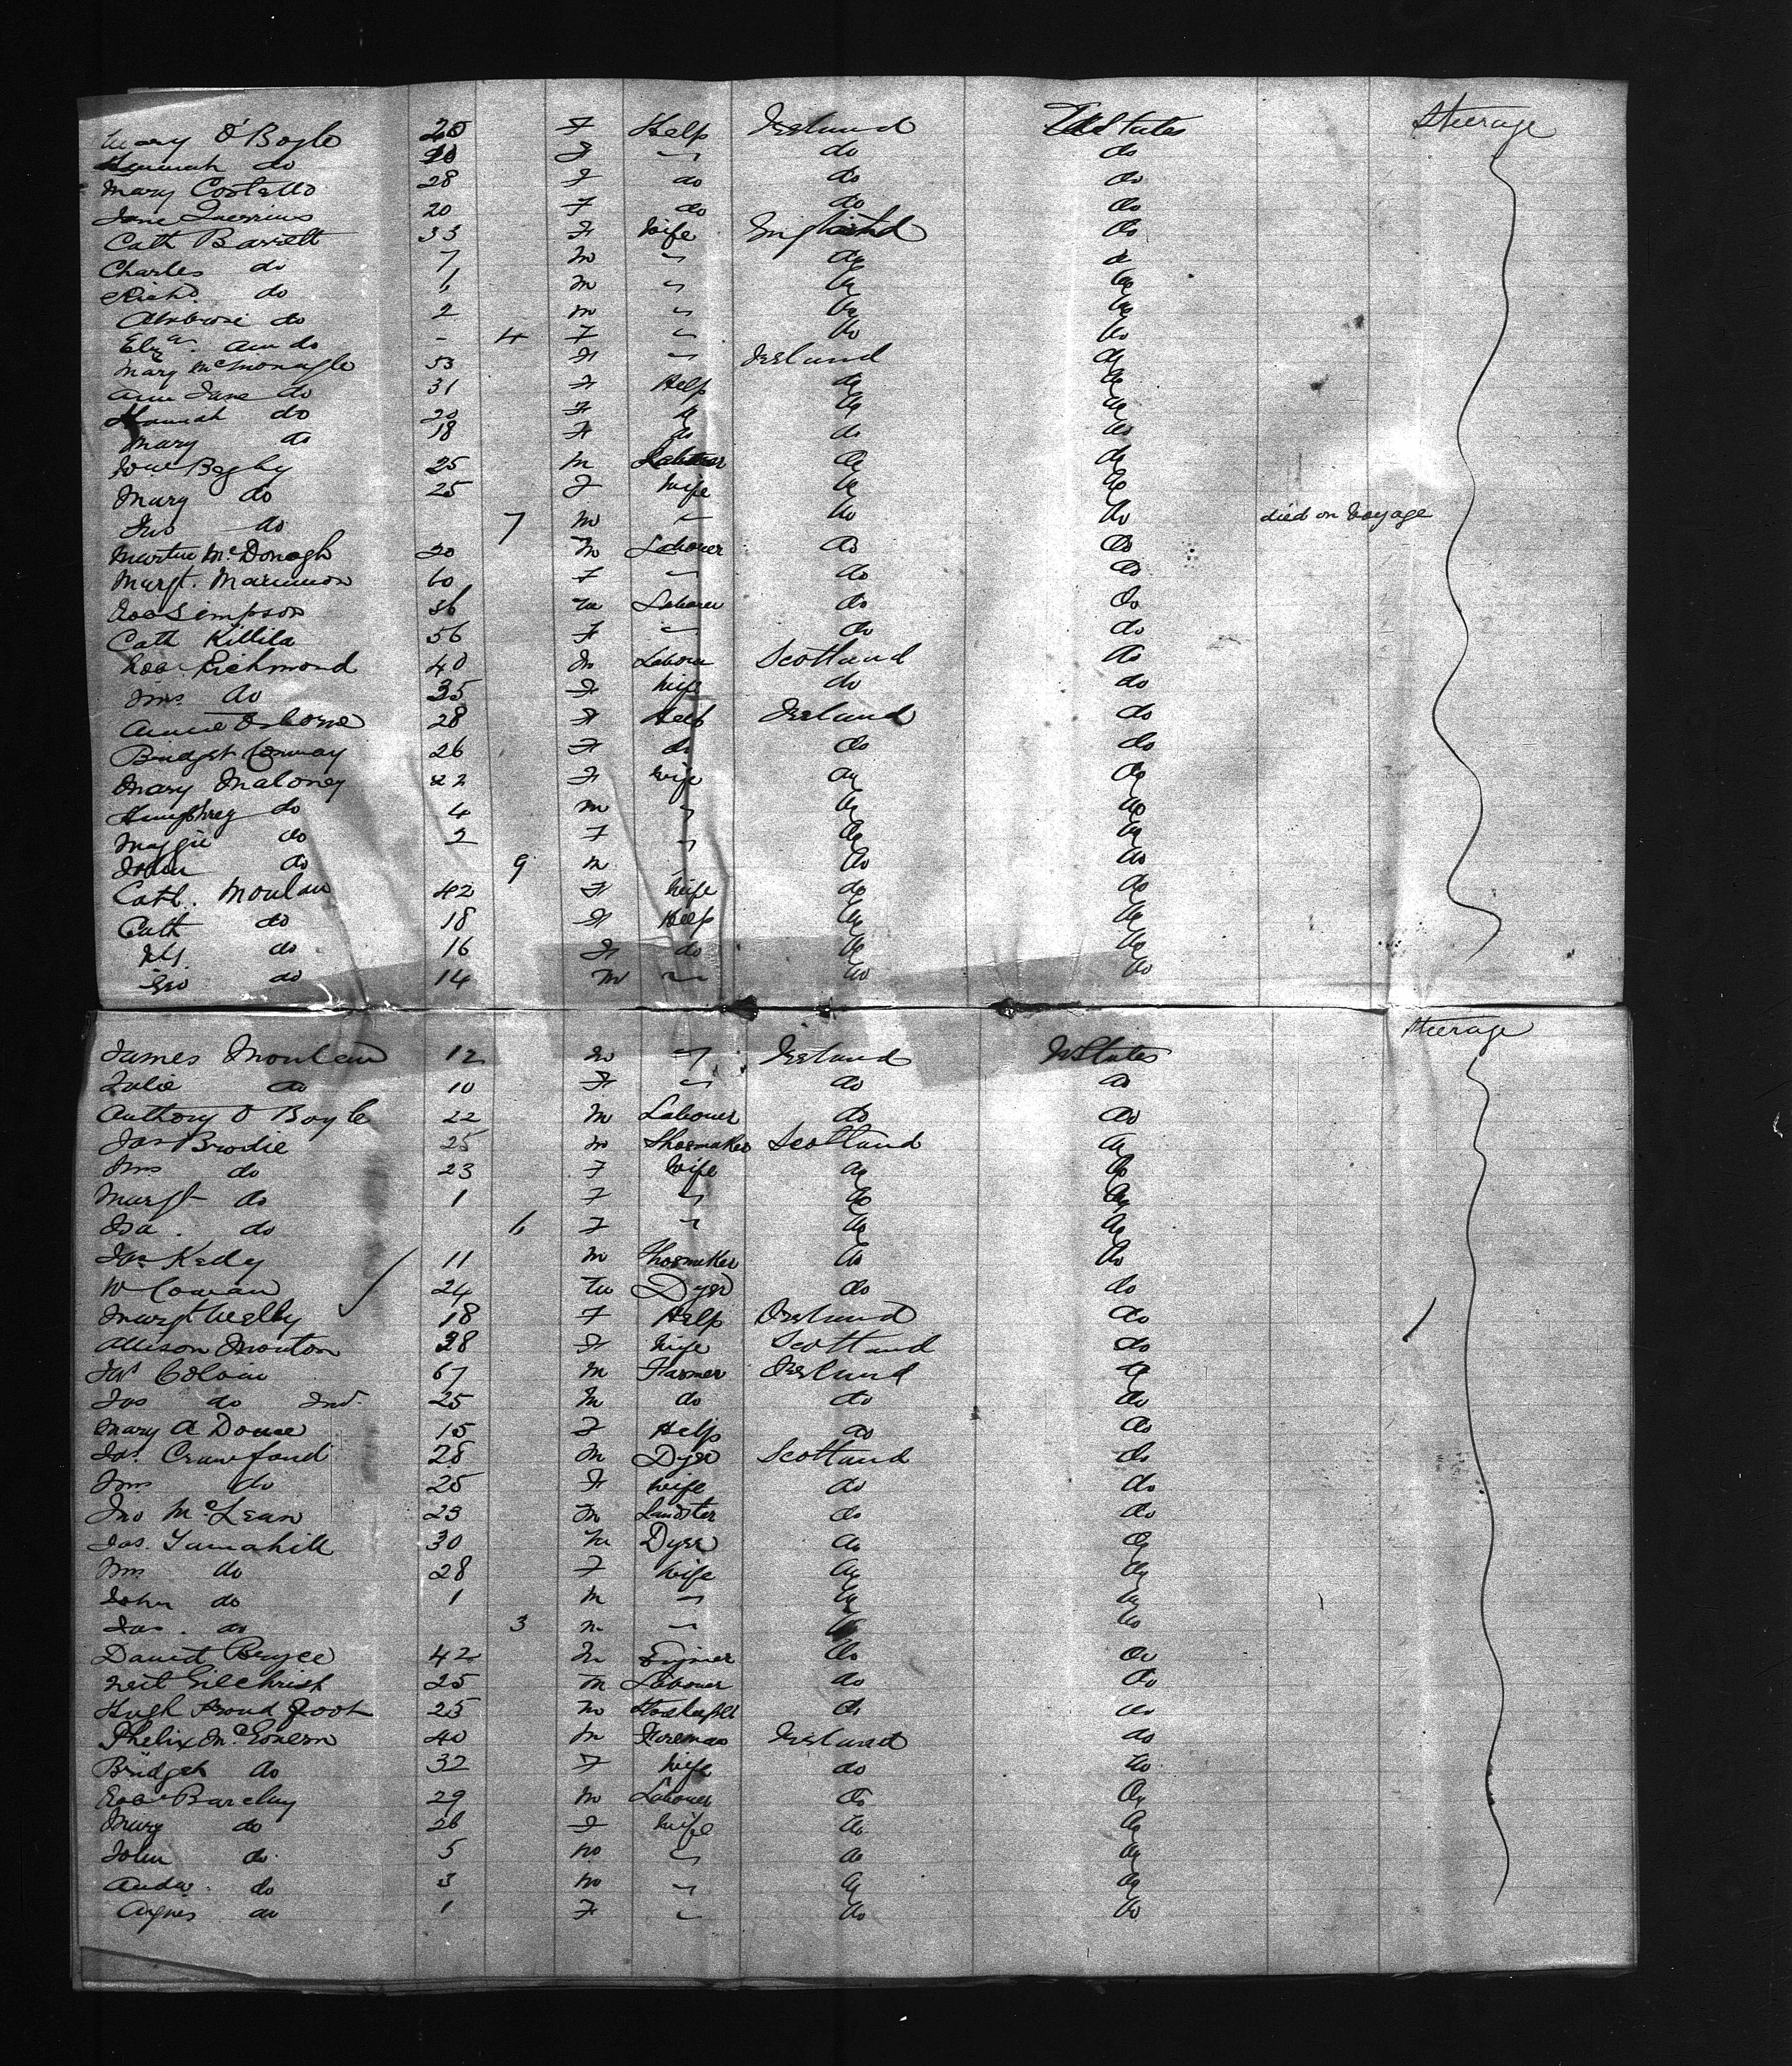 Mary O'Boyle 25 F Help Ireland U States Steerage
Hannah do F " do do
Mary Costello 28 F do do do
Jane 20 F do do do
Cath Barrett 33 F Wife England do
Charles do 7 M " do do
Richd. do 6 M " do do
Ambrose do 2 M " do do
Elz a. Ann do - 4 F " do do
Mary McMonagle 53 F " Ireland do
Ann Jane do 31 F Help do do
Hannah do 20 F do do do
Mary do 18 F do do do
Wm Begby 25 M Labourer do do
Mary do 25 F Wife do do
Jno do 7 M " do do died on Voyage
Martin McDonogh 20 M Labourer do do
Margt. 60 F " do do
Robt Sempson 36 M Labourer do do
Cath Killila 56 F " do do
Robt Richmond 40 M Labour Scotland do
Mrs. do 35 F Wife do do
Annie Osborne 28 F Help Ireland do
Bridget Conway 26 F do do do
Mary Maloney 22 F Wife do do
Humphrey do 4 M " do do
Maggie do 2 F " do do
John do 9 M do do
Cath. Moulan 42 F Wife do do
Cath do 18 F Help do do
do 16 F do do do
Geo do 14 M " do do
Steerage
James Moulan 12 M " Ireland U States
Julie do 10 F " do do
Anthony O Boyle 22 M Labourer do do
Jas Brodie 25 M Shoemaker Scotland do
Mrs do 23 F Wife do do
Margt do 1 F " do do
Isa. do 6 F " do do
Jas Kedy 11 M Shoemaker do do
W Cowan 24 M Dyer do do
Margt 18 F Help Ireland do
Allison Morton 28 F Wife Scotland do
Jas Colvin 67 M Farmer Ireland do
Jas do Jnr. 25 M do do do
Mary A Douce 15 F Help do do
Jas. Crawford 28 M Dyer Scotland do
Mrs do 25 F Wife do do
Jno McLean 23 M do do
Jas. Tannahill 30 M Dyer do do
Mrs do 28 F Wife do do
John do 1 M " do do
Jas. do 3 M " do do
David Bryce 42 M do do
Neil Gilchrist 25 M Labourer do do
Hugh Proudfoot 25 M do do
Phelix McGovern 40 M Foreman Ireland do
Bridget do 32 F Wife do do
Robt Barclay 29 M Labourer do do
Mary do 26 F Wife do do
John do 5 M " do do
Andw. do 3 M " do do
Agnes do 1 F " do do